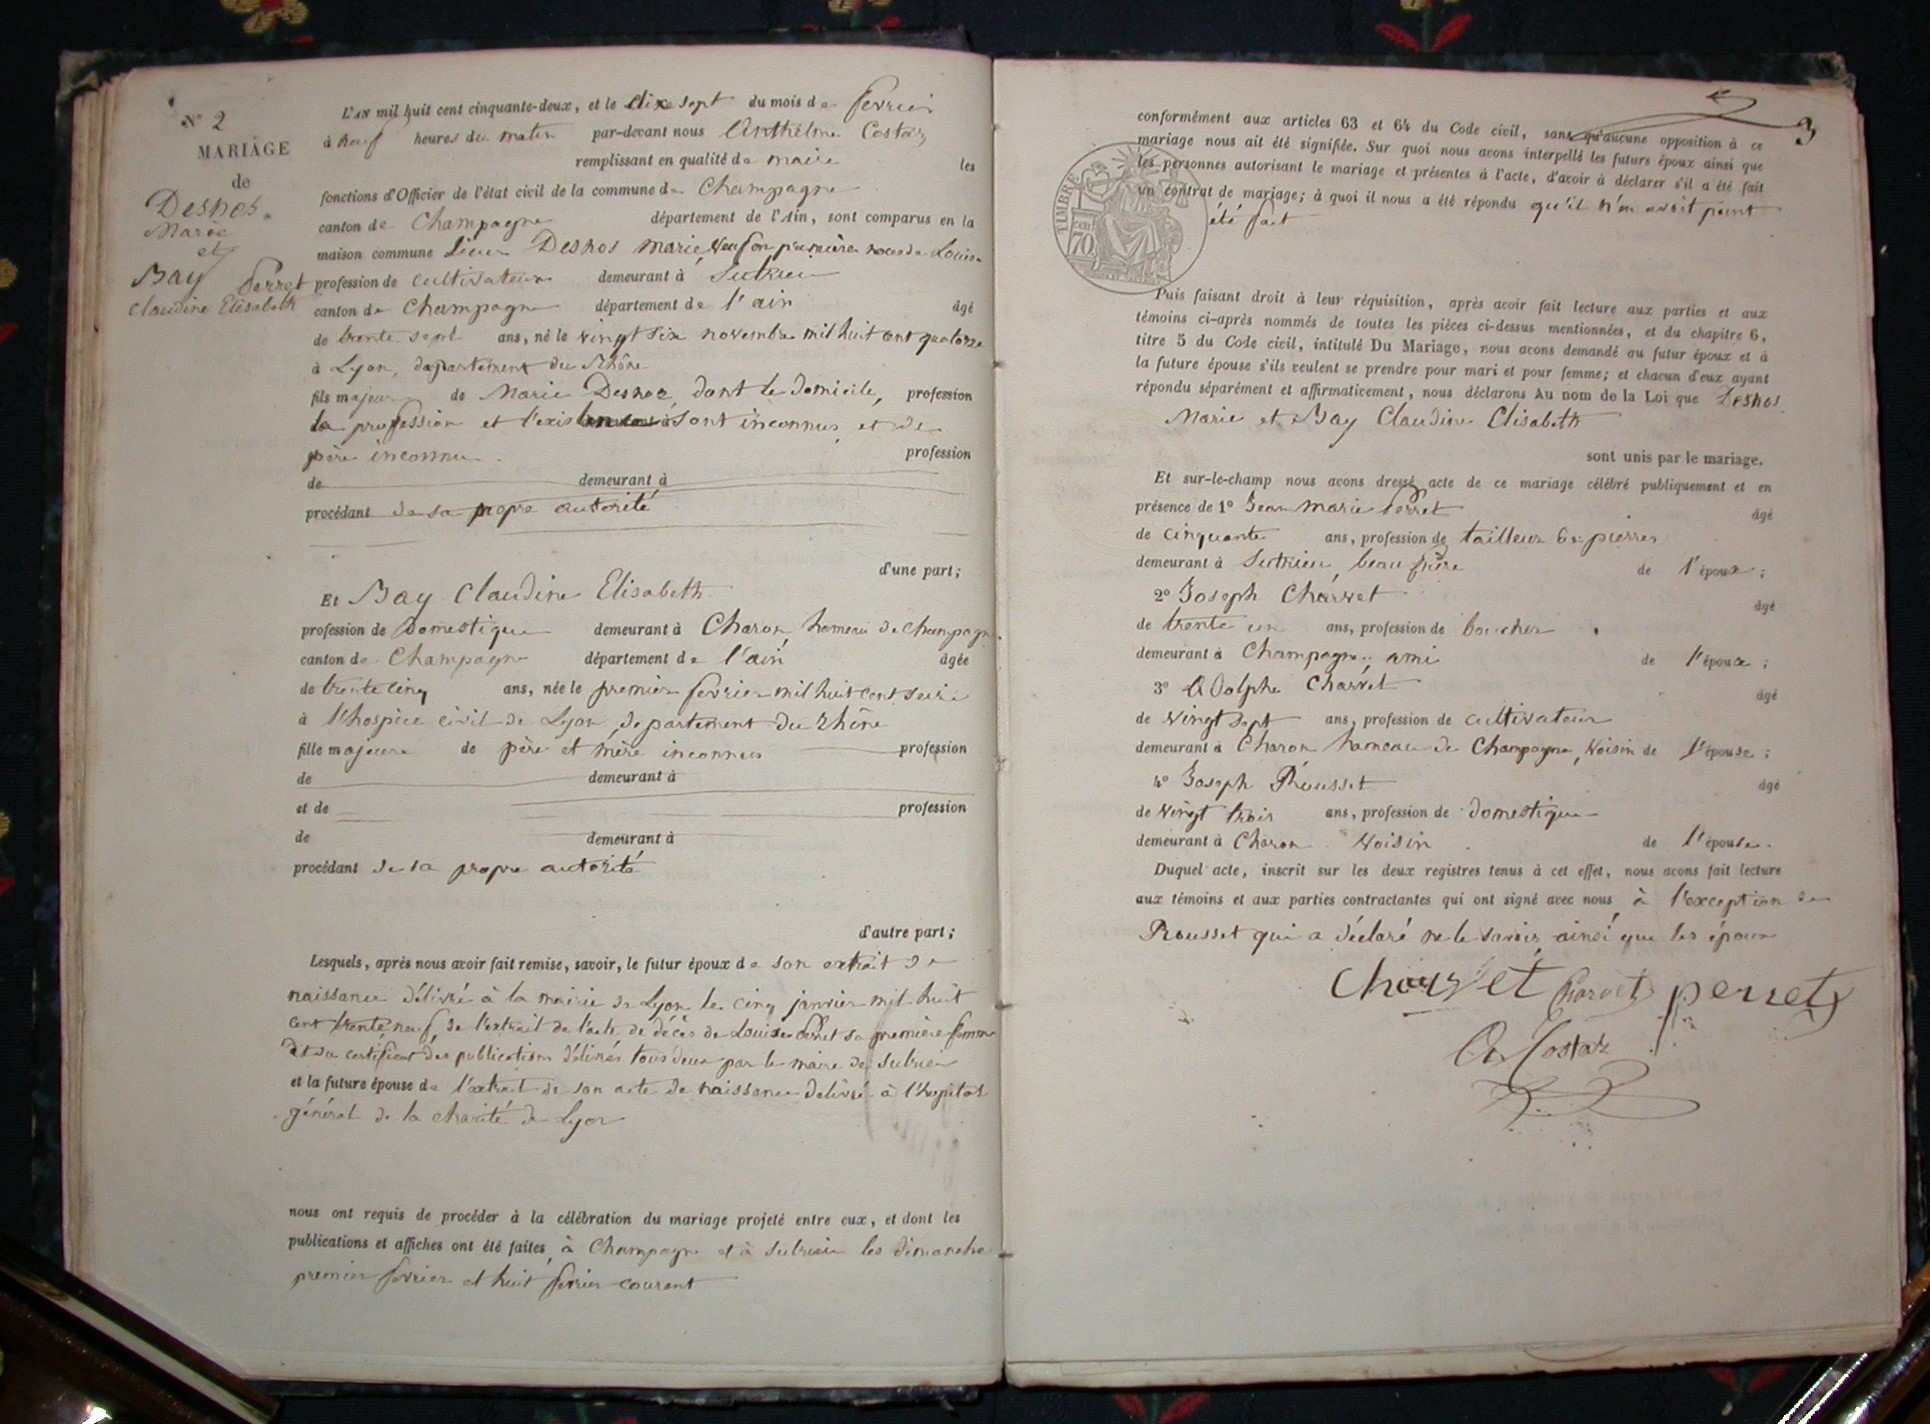 N° 2
MARIAGE
de
Desnos
Marie
et
Bay Perret
Claudine Elisabeth
L'AN mil huit cent cinquante-deux, et le dixe sept du mois de fevrier
à neuf heures du matin par-devant nous Anthelme Costaz
remplissant en qualité de maire les
fonctions d'Officier de l'état civil de la commune de Champagne
canton de Champagne département de l'Ain, sont comparus en la
maison commune Desnos Marie, veuf en première noces de Louise
profession de cultivateur demeurant à Sutrieu
canton de Champagne département de l'ain âgé
de trente sept ans, né le vingt six novembre mil huit cent quatorze
à Lyon, département du Rhône
fils majeur de Marie Desnos, dont le domicile, profession
la profession et l'existence sont inconnus, et de
père inconnu. profession
de demeurant à
procédant de sa propre autorité
d'une part;
Et Bay Claudine Elisabeth
profession de Domestique demeurant à Charon, hameau de Champagne
canton de Champagne département de l'ain âgée
de trente cinq ans, née le premier fevrier mil huit cent seize
à l'hospice civil de Lyon, departement du Rhône
fille majeure de père et mère inconnus profession
de demeurant à
et de profession
de demeurant à
procédant de sa propre autorité
d'autre part;
Lesquels, après nous avoir fait remise, savoir, le futur époux de son extrait de
naissance délivré à la mairie de Lyon le cinq janvier mil huit
cent trente neuf, de l'extrait de l'acte de décès de Louise Perret sa première femme
et du certificat des publications délivrés tous deux par le maire de Sutrieu
et la future épouse de l'extrait de son acte de naissance delivré à l'hopital
général de la charité de Lyon
nous ont requis de procéder à la célébration du mariage projeté entre eux, et dont les
publications et affiches ont été faites à Champagne et à Sutrieu les dimanche
premier fevrier et huit fevrier courent
3
conformément aux articles 63 et 64 du Code civil, sans qu'aucune opposition à ce
mariage nous ait été signifiée. Sur quoi nous avons interpellé les futurs époux ainsi que
les personnes autorisant le mariage et présentes à l'acte, d'avoir à déclarer s'il a été fait
un contrat de mariage; à quoi il nous a été répondu qu'il n'en avait point
été fait
TIMBRE
70
Puis faisant droit à leur réquisition, après avoir fait lecture aux parties et aux
témoins ci-après nommés de toutes les pièces ci-dessus mentionnées, et du chapitre 6,
titre 5 du Code civil, intitulé Du Mariage, nous avons demandé au futur époux et à
la future épouse s'ils veulent se prendre pour mari et pour femme; et chacun d'eux ayant
répondu séparément et affirmativement, nous déclarons Au nom de la Loi que Desnos
Marie et Bay Claudine Elisabeth
sont unis par le mariage.
Et sur-le-champ nous avons dressé acte de ce mariage célébré publiquement et en
présence de 1° Jean Marie Perret âgé
de cinquante ans, profession de tailleur de pierres
demeurant à Sutrieu, beau frère de l'époux;
2° Joseph Charvet âgé
de trente un ans, profession de boucher
demeurant à Champagne, ami de l'époux;
3° Adolphe Charvet âgé
de vingt sept ans, profession de cultivateur
demeurant à Charon hameau de Champagne, voisin de l'épouse;
4° Joseph Rousset âgé
de vingt trois ans, profession de domestique
demeurant à Charon voisin de l'épouse.
Duquel acte, inscrit sur les deux registres tenus à cet effet, nous avons fait lecture
aux témoins et aux parties contractantes qui ont signé avec nous, à l'exception de
Rousset qui a déclaré ne le savoir, ainsi que les époux
Charvet Charvet perret
A Costaz